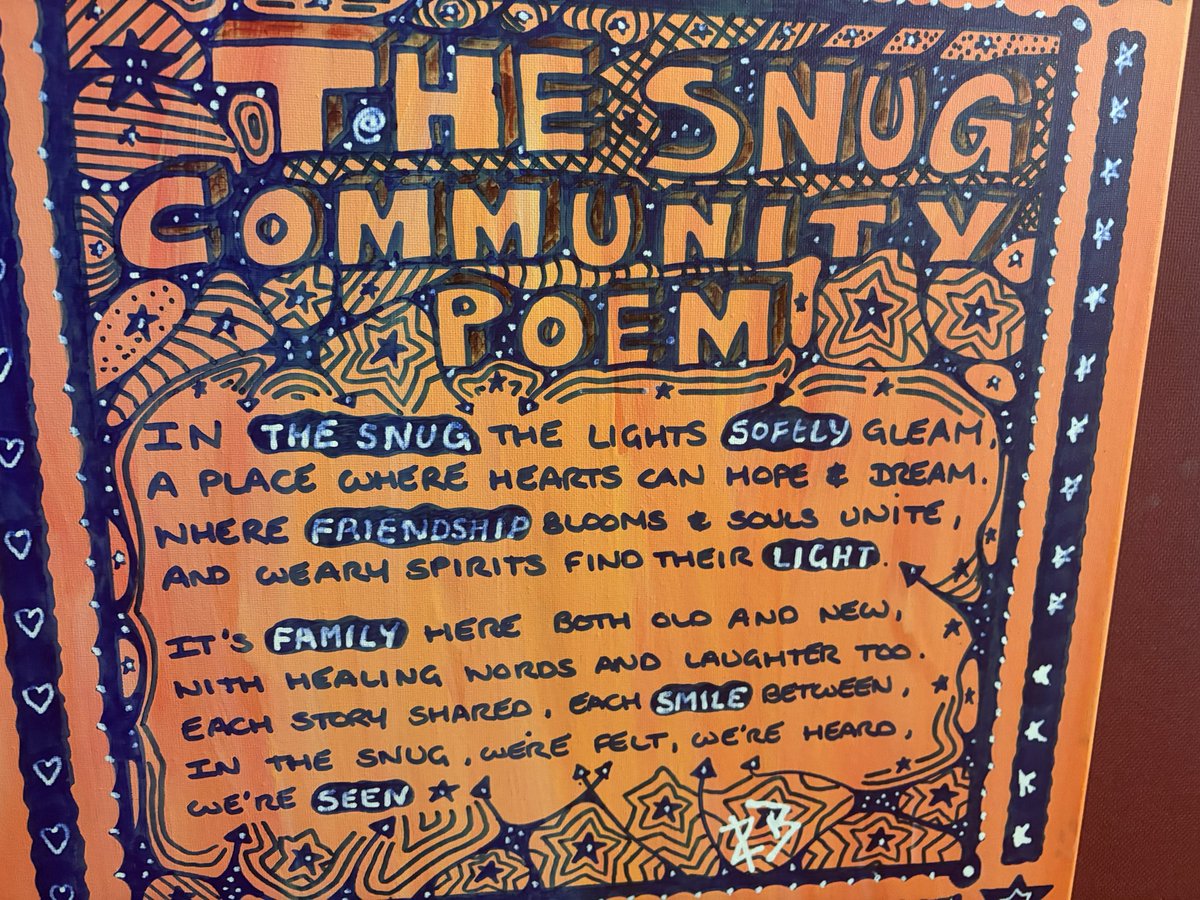 THE SNUG
COMMUNITY
POEM
IN THE SNUG THE LIGHTS SOFTLY GLEAM,
A PLACE WHERE HEARTS CAN HOPE & DREAM.
WHERE FRIENDSHIP BLOOMS & SOULS UNITE,
AND WEARY SPIRITS FIND THEIR LIGHT.
IT'S FAMILY HERE BOTH OLD AND NEW,
WITH HEALING WORDS AND LAUGHTER TOO.
EACH STORY SHARED, EACH SMILE BETWEEN,
IN THE SNUG, WE'RE FELT, WE'RE HEARD,
WE'RE SEEN
RB